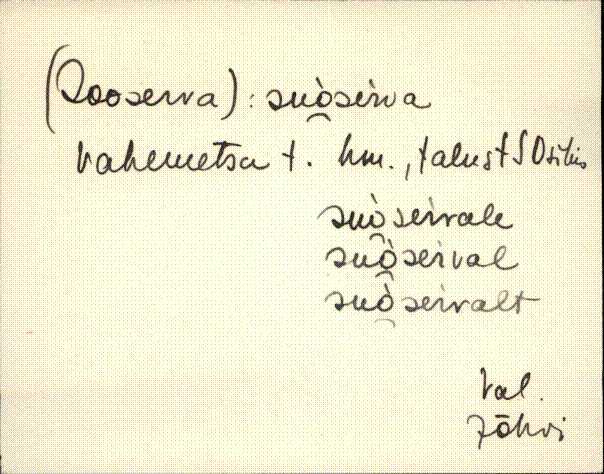 (Sooserva): suòserva
Vahemetsa t. hm., talust S Osikus
suòservale
suòserval
suòservalt
Val.
Jõhvi